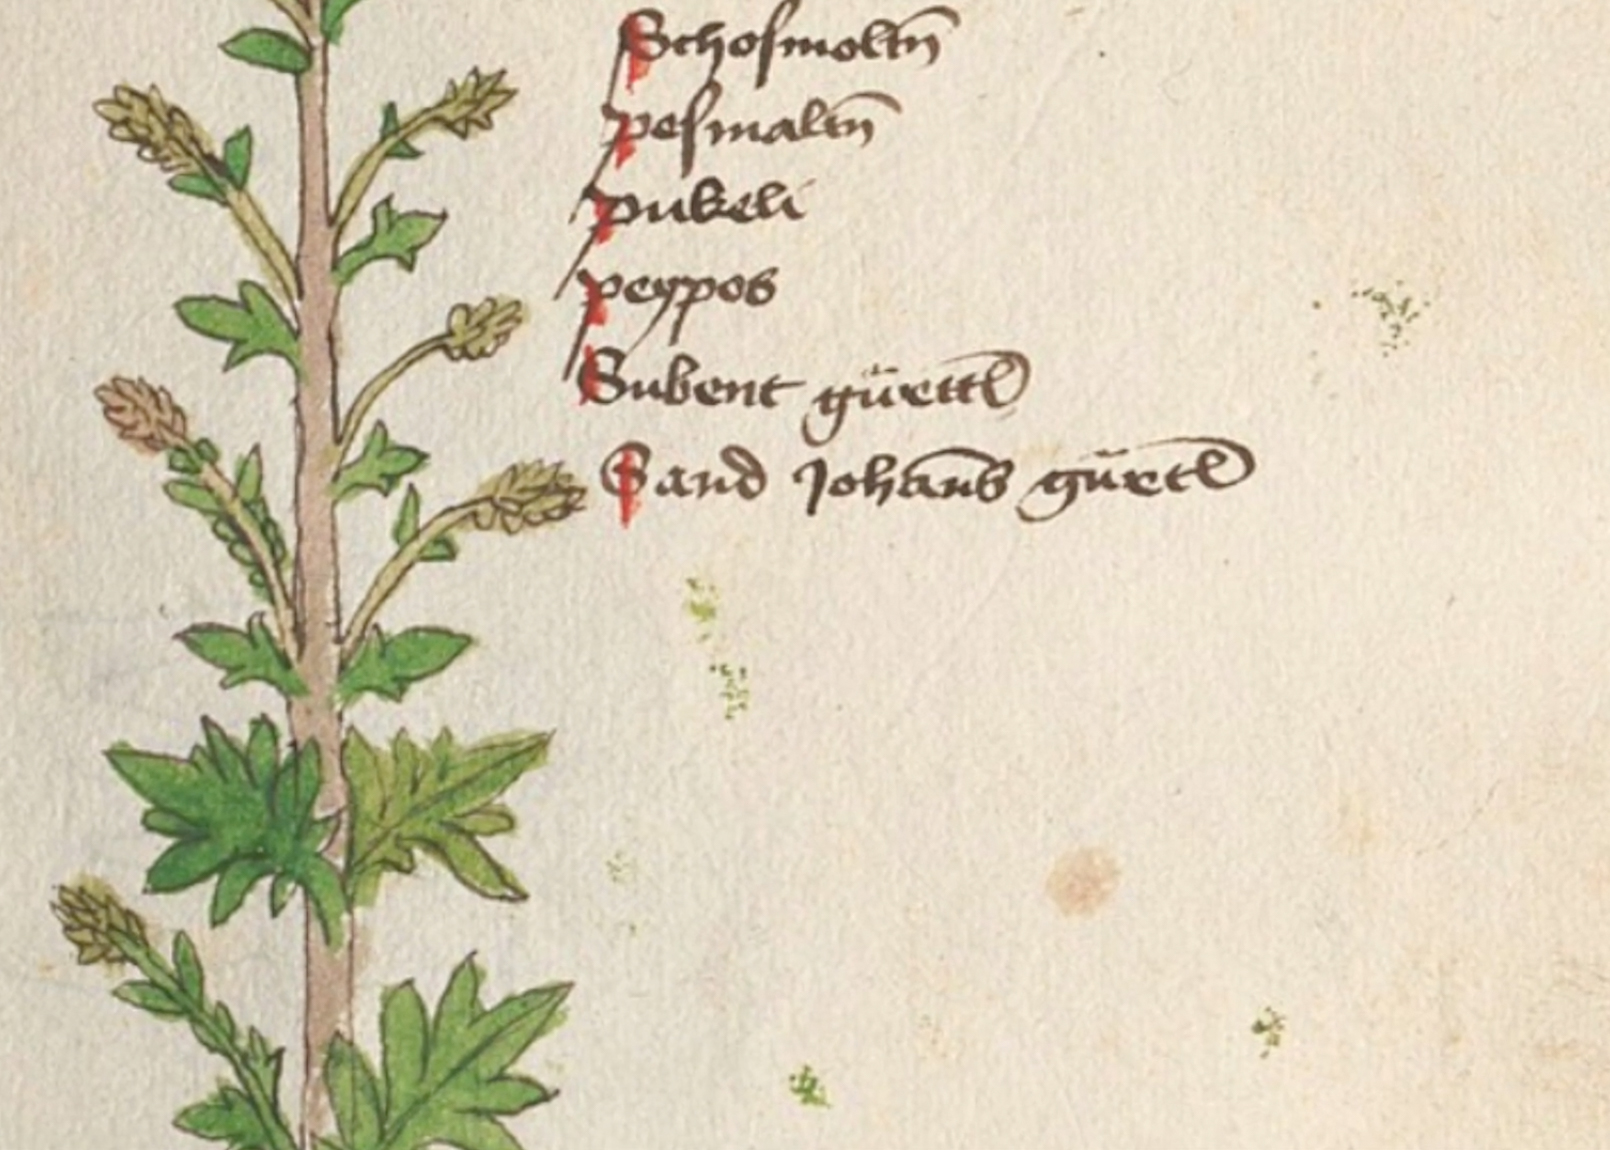 Schosmoltn̄
pesmaltn̄
pukeli
peypos
Subent gürttl
Sand Johan̄s gürtl